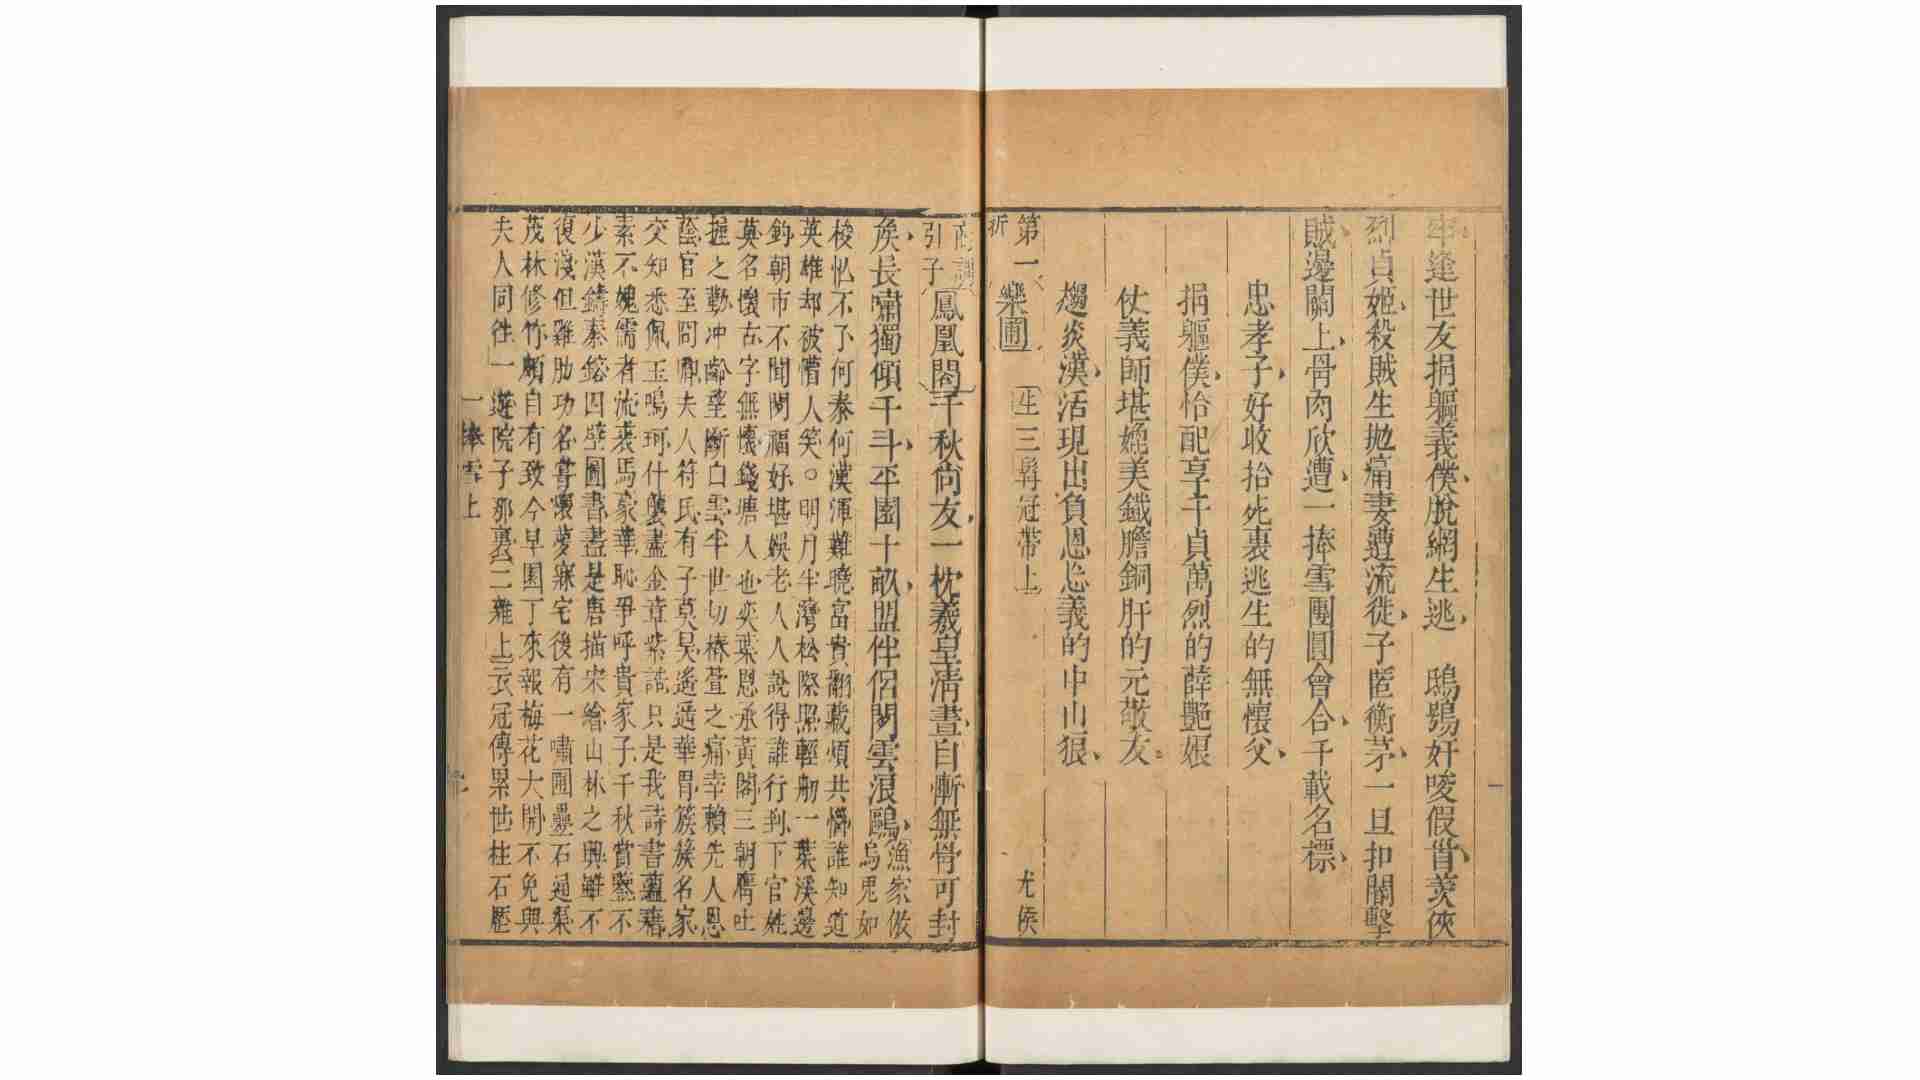 牢逢世友捐軀義僕脫網生逃　鴟鴞奸唆假首羨俠
烈貞姬殺賊生拋痛妻遭流徙子匿衡茅一旦扣閽擊
賊邊關上骨肉欣遭一捧雪團圓會合千載名標
忠孝子好收拾死裏逃生的無懷父
捐軀僕恰配享千貞萬烈的薛艷娘
仗義師堪媲美鐵膽銅肝的元敬友
趨炎漢活現出負恩忘義的中山狼
第一折　樂圃　生三髯冠帶上　尤侯
商調引子　鳳凰閣　千秋尚友一枕羲皇清晝自慚無骨可封
矦長嘯獨傾千斗平園十畝盟伴侶閒雲浪鷗　漁家傲　烏兎如
梭忙不了何秦何漢渾難曉富貴翻載煩共惱誰知道
英雄却被懵人笑○明月半灣松際照輕舠一葉溪邊
釣朝市不聞閒福好堪娛老人人說得誰行到下官姓
莫名懷古字無懷錢塘人也奕葉恩承黃閣三朝膺吐
握之勤冲齡望斷白雲半世切椿萱之痛幸賴先人恩
蔭官至冏卿夫人符氏有子莫昊遙遥華胄簇簇名家
交知悉佩玉鳴珂什襲盡金章紫誥只是我詩書蘊藉
素不媿儒者流裘馬豪華恥爭呼貴家子千秋賞鑒不
少漢鑄秦鎔四壁圖書盡是唐描宋繪山林之興雖不
復淺但雞肋功名嘗懷夢寐宅後有一嘯圃壘石通渠
茂林修竹頗自有致今早園丁來報梅花大開不免與
夫人同徃一遊院子那裏二雜上云衣冠傳累世柱石歷
一捧雪上